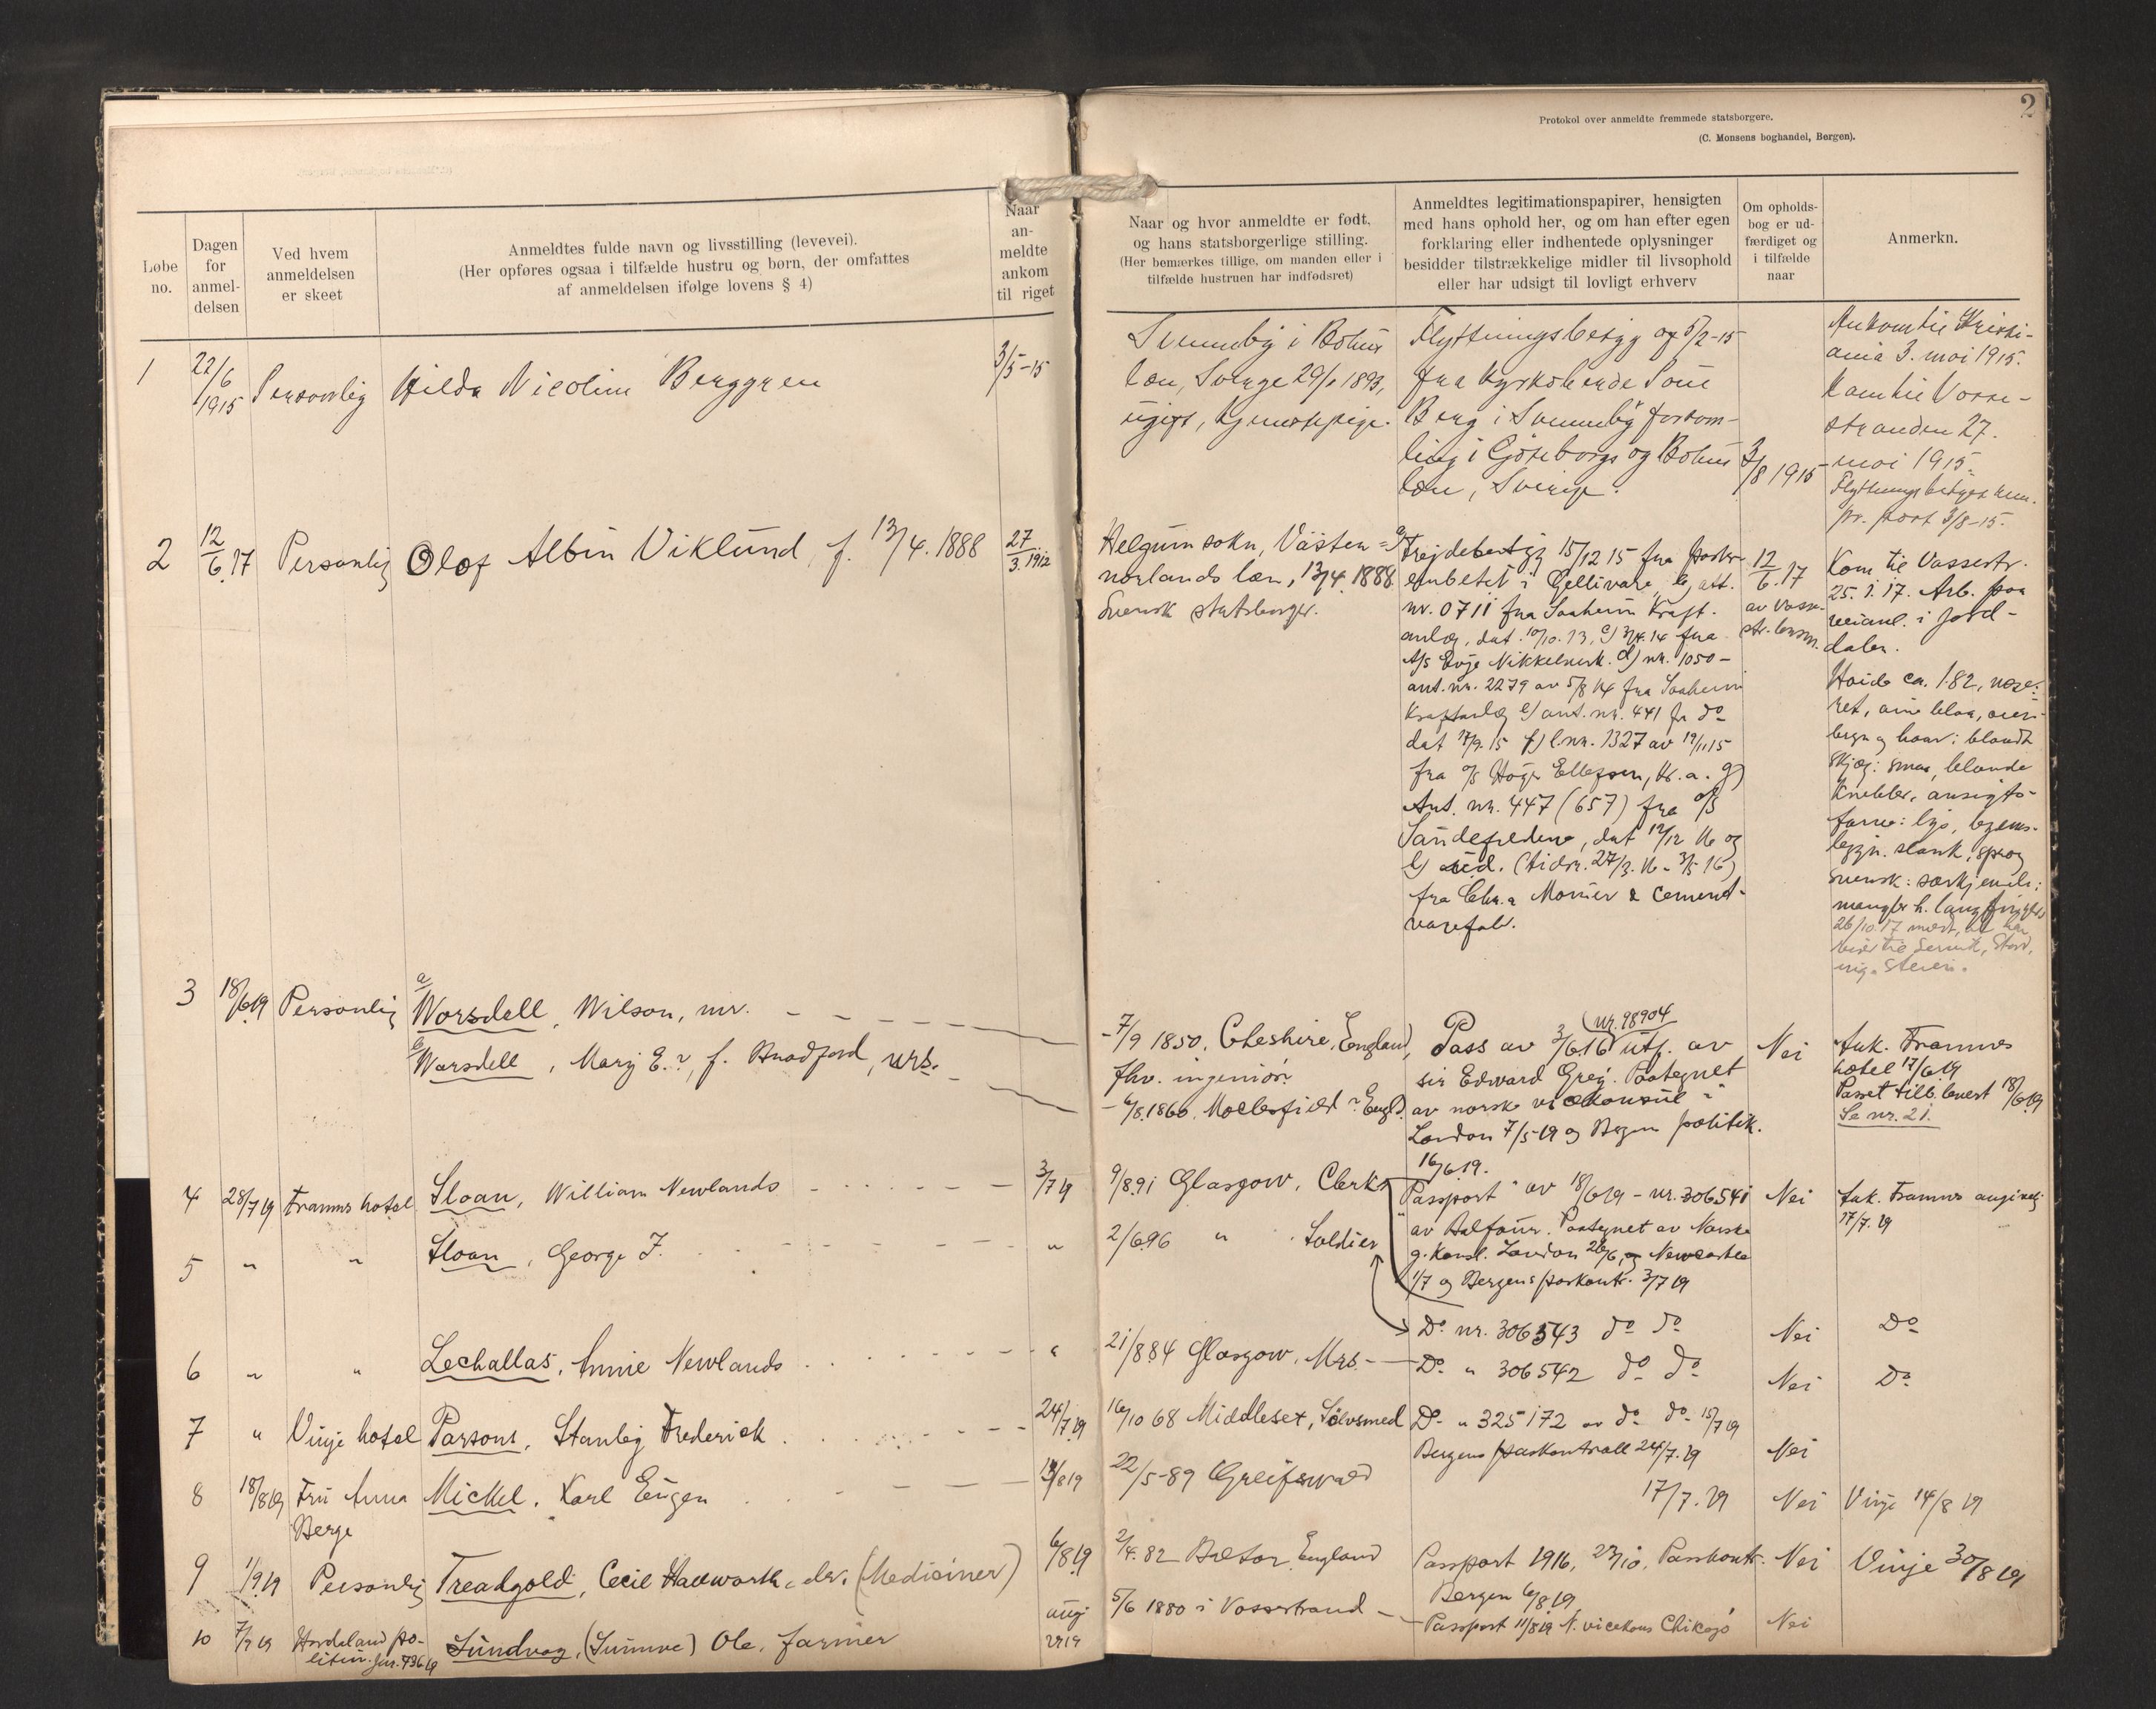 2
Protokol over anmeldte fremmede statsborgere.
(C. Monsens boghandel, Bergen).
Løbe no.
Dagen for anmel-delsen
Ved hvem anmeldelsen er skeet
Anmeldtes fulde navn og livsstilling (levevei).
(Her opføres ogsaa i tilfælde hustru og børn, der omfattes
af anmeldelsen ifølge lovens § 4)
Naar an-meldte ankom til riget
Naar og hvor anmeldte er født,
og hans statsborgerlige stilling.
(Her bemærkes tillige, om manden eller i
tilfælde hustruen har indfødsret)
Anmeldtes legitimationspapirer, hensigten
med hans ophold her, og om han efter egen
forklaring eller indhentede oplysninger
besidder tilstrækkelige midler til livsophold
eller har udsigt til lovligt erhverv
Om opholds-
bog er ud-
færdiget og
i tilfælde
naar
Anmerkn.
1
22/6 1915
Personlig
Hilda Nicolina Berggren
3/5-15
i Bohus
læn, Sverge 29/ 1893,
ugift,
Flyttningsbetyg og 5/2-15
fra Kyrkoherde
Berg i
ling i Göteborgs og Bohus
læn, Sverige.
3/8 1915
Ankom til Kristi-
ania 3. mai 1915.
Kom til Vosse-
stranden 27.
mai 1915.
pr. post 3/8-15.
2
12/6.17
Personlig
Olof Albin Viklund, f. 13/4. 1888
27/3. 1912
Helgum sokn, Västen=
norlands læn, 13/4 1888
Svensk statsborger.
a) Frejdebetyg 15/12 15 fra pastor
embetet i Gellivare, b) att.
nr. 0711 fra Saaheim Kraft-
anlæg, dat. 10/10. 13, c) 3/4. 14 fra
A/S Evje Nikkelverk. d) nr. 1050 –
ant. nr. 2279 av 5/8 14 fra Saaheim
Kraftanlæg e) ant. nr. 441 fr do
dat 17/9. 15 f) l. nr. 1327 av 19/11 15
fra A/S Høyer Ellefsen, Kr. a. g)
Ant. nr. 447 (657) fra A/S
dat 12/12 16 og
(tidsr. 27/3. 16 - 3/5 16)
fra Chr.a Monier & Cement-
varefabr.
12/6.17
av Vosse-
str. lensm.
Kom til Vossestr.
25. 1. 17. Arb. paa
veianl. i Jord-
dalen.
Høide ca. 1.82, næse:
ret, øine blaa, øien-
bryn og haar: blondt
skjæg: smaa, blonde
Knebler, ansigts-
farve: lys, legems-
bygn. slank, sprog
svensk: særkjende:
mangler h. langfinger
26/10. 17
3
18/6 19
Personlig
a/ Worsdell, Wilson, mr.
b/ Worsdell, Mary E.?, f. Bradford, mrs.
7/9 1850. Cheshire, England,
fhv. ingeniør.
6/8. 1860. ? Engl.
(nr. 98904
Pass av 3/6 16 utf. av
sir Edward Grey. Paategnet
av norske vicekonsul i
London 7/5-19 og Bergen politik.
16/6 19.
Nei
Ank. Framnes
hotel 17/6 19
Passet tilb. levert 18/6 19
Se nr. 21.
4
28/7 19
Framnes hotel
Sloan, William Newlands
3/7 19
9/8 91 Glasgow, Clerk
"Passport" av 18/6 19 - nr. 306541
av Balfour. Paategnet av Norske
g. Konsl. London 26/6, og Newcastle
1/7 og Bergens passkontr. 3/7 19
Nei
Ank. Framnes
17/7. 19
5
"
"
Sloan, George J.
"
2/6 96 " Soldier
Do. nr. 306543 do do
Nei
Do
6
"
"
Lechallas, Annie Newlands
"
21/8 84 Glasgow, Mrs.
Do. " 306542 do do
Nei
Do
7
"
Vinje hotel
Parsons, Stanley Frederick
24/7 19
16/10 68 Middlesex, Sølvsmed
Do " 325172 av do do 15/7 19
Bergens passkontroll 24/7. 19
Nei
8
18/8 19
Fru Anna
Berge
Mickel, Karl Eugen
22/5-89 Greifswald
17/7. 19
Nei
Vinje 14/8 19
9
1/9 19
Personlig
Treadgold, Cecil (Mediciner)
6/8 19
2/4. 82 England
Passport 1916, 23/10. Passkontr.
Bergen 6/8 19
Nei
Vinje 30/8 19
10
7/9 19
Hordaland po-
litim. jnr. 736 19
Sundvag, (Sunnve) Ole, farmer
aug.
1919
5/6 1880 i Vossestrand
Passport 11/8 19 N. vicekons Chikago
Nei